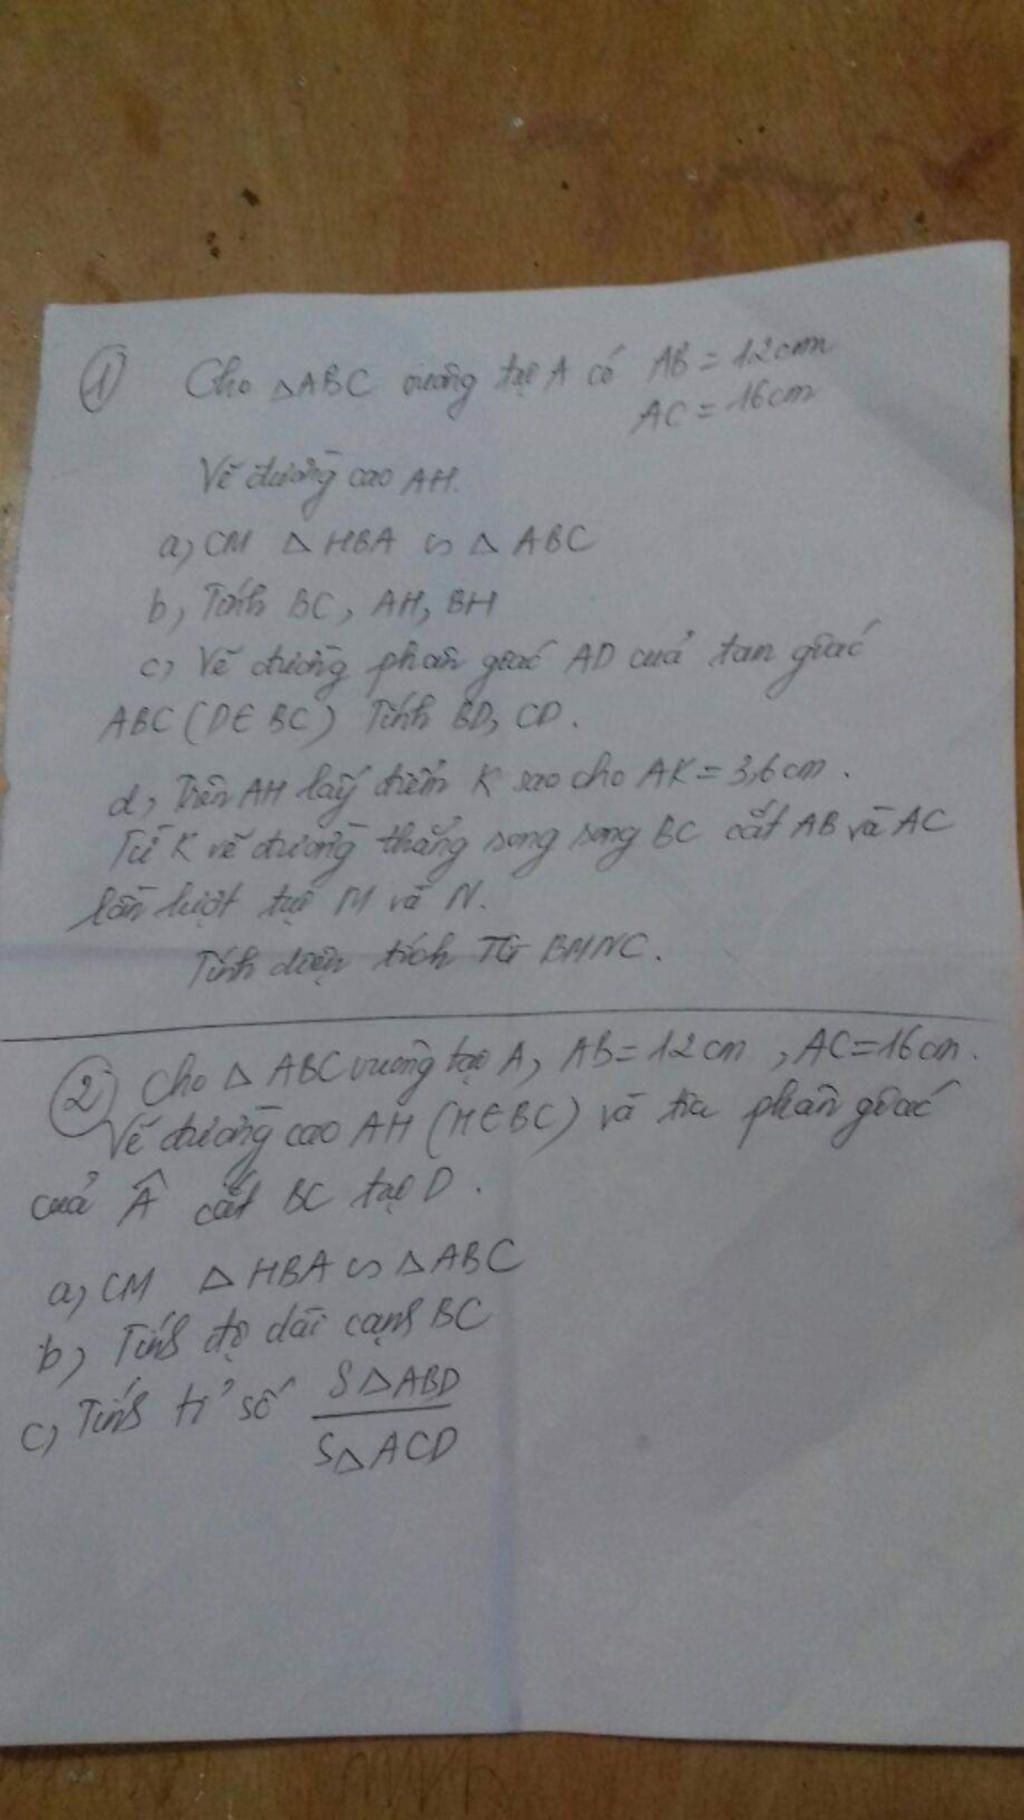 ① Cho △ABC vuông tại A có AB = 12cm
AC = 16cm
Vẽ đường cao AH.
a, CM △ HBA ∽ △ ABC
b, Tính BC, AH, BH
c, Vẽ đường phân giác AD cuả tan giác
ABC (D∈ BC) Tính BD, CD.
d, Trên AH lấy điểm K sao cho AK = 3,6cm.
Từ K vẽ đường thẳng song song BC cắt AB và AC
lần lượt tại M và N.
Tính diện tích TG BMNC.
② Cho △ ABC vuông tại A, AB = 12 cm, AC = 16 cm.
Vẽ đường cao AH (H∈BC) và tia phân giác
cuả Â cắt BC tại D.
a, CM △ HBA ∽ △ ABC
b, Tính độ dài cạnh BC
c, Tính tỉ số S△ABD
S△ACD